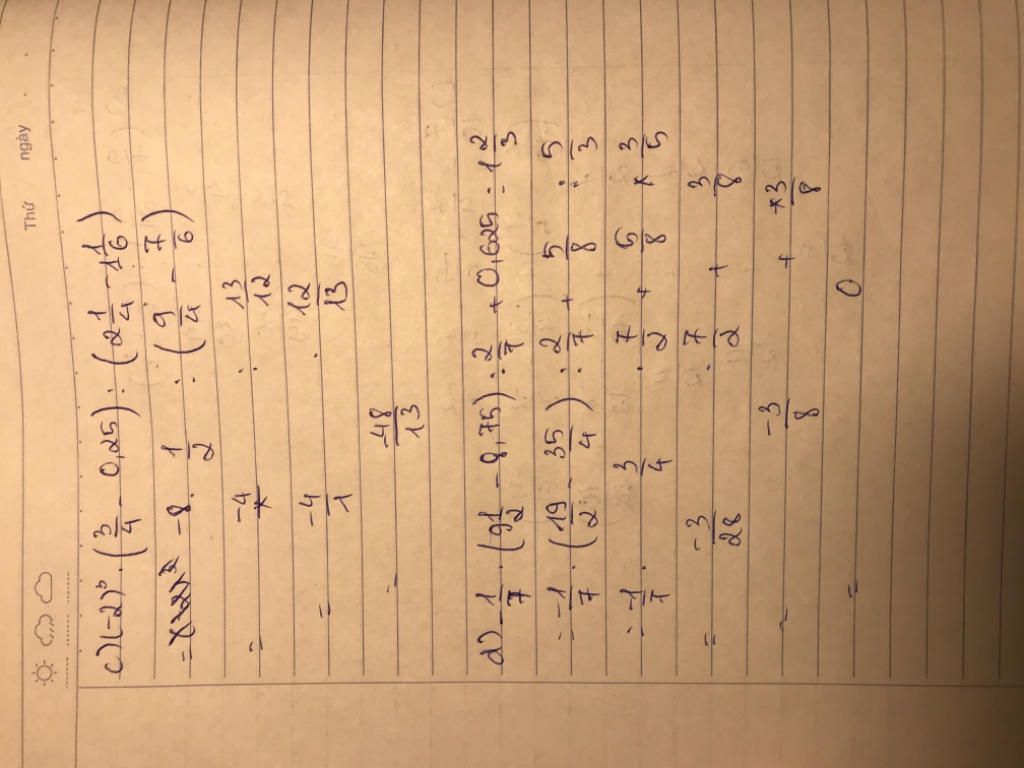 Thứ ngày
c) (-2)³ . (3/4 - 0,25) : (2 1/4 - 1 1/6)
= -8 . 1/2 : (9/4 - 7/6)
= -4 : 13/12
= -4/1 . 12/13
= -48/13
d) -1/7 . (9 1/2 - 8,75) : 2/7 + 0,625 : 1 2/3
= -1/7 . (19/2 - 35/4) : 2/7 + 5/8 : 5/3
= -1/7 . 3/4 . 7/2 + 5/8 × 3/5
= -3/28 . 7/2 + 3/8
= -3/8 + 3/8
= 0